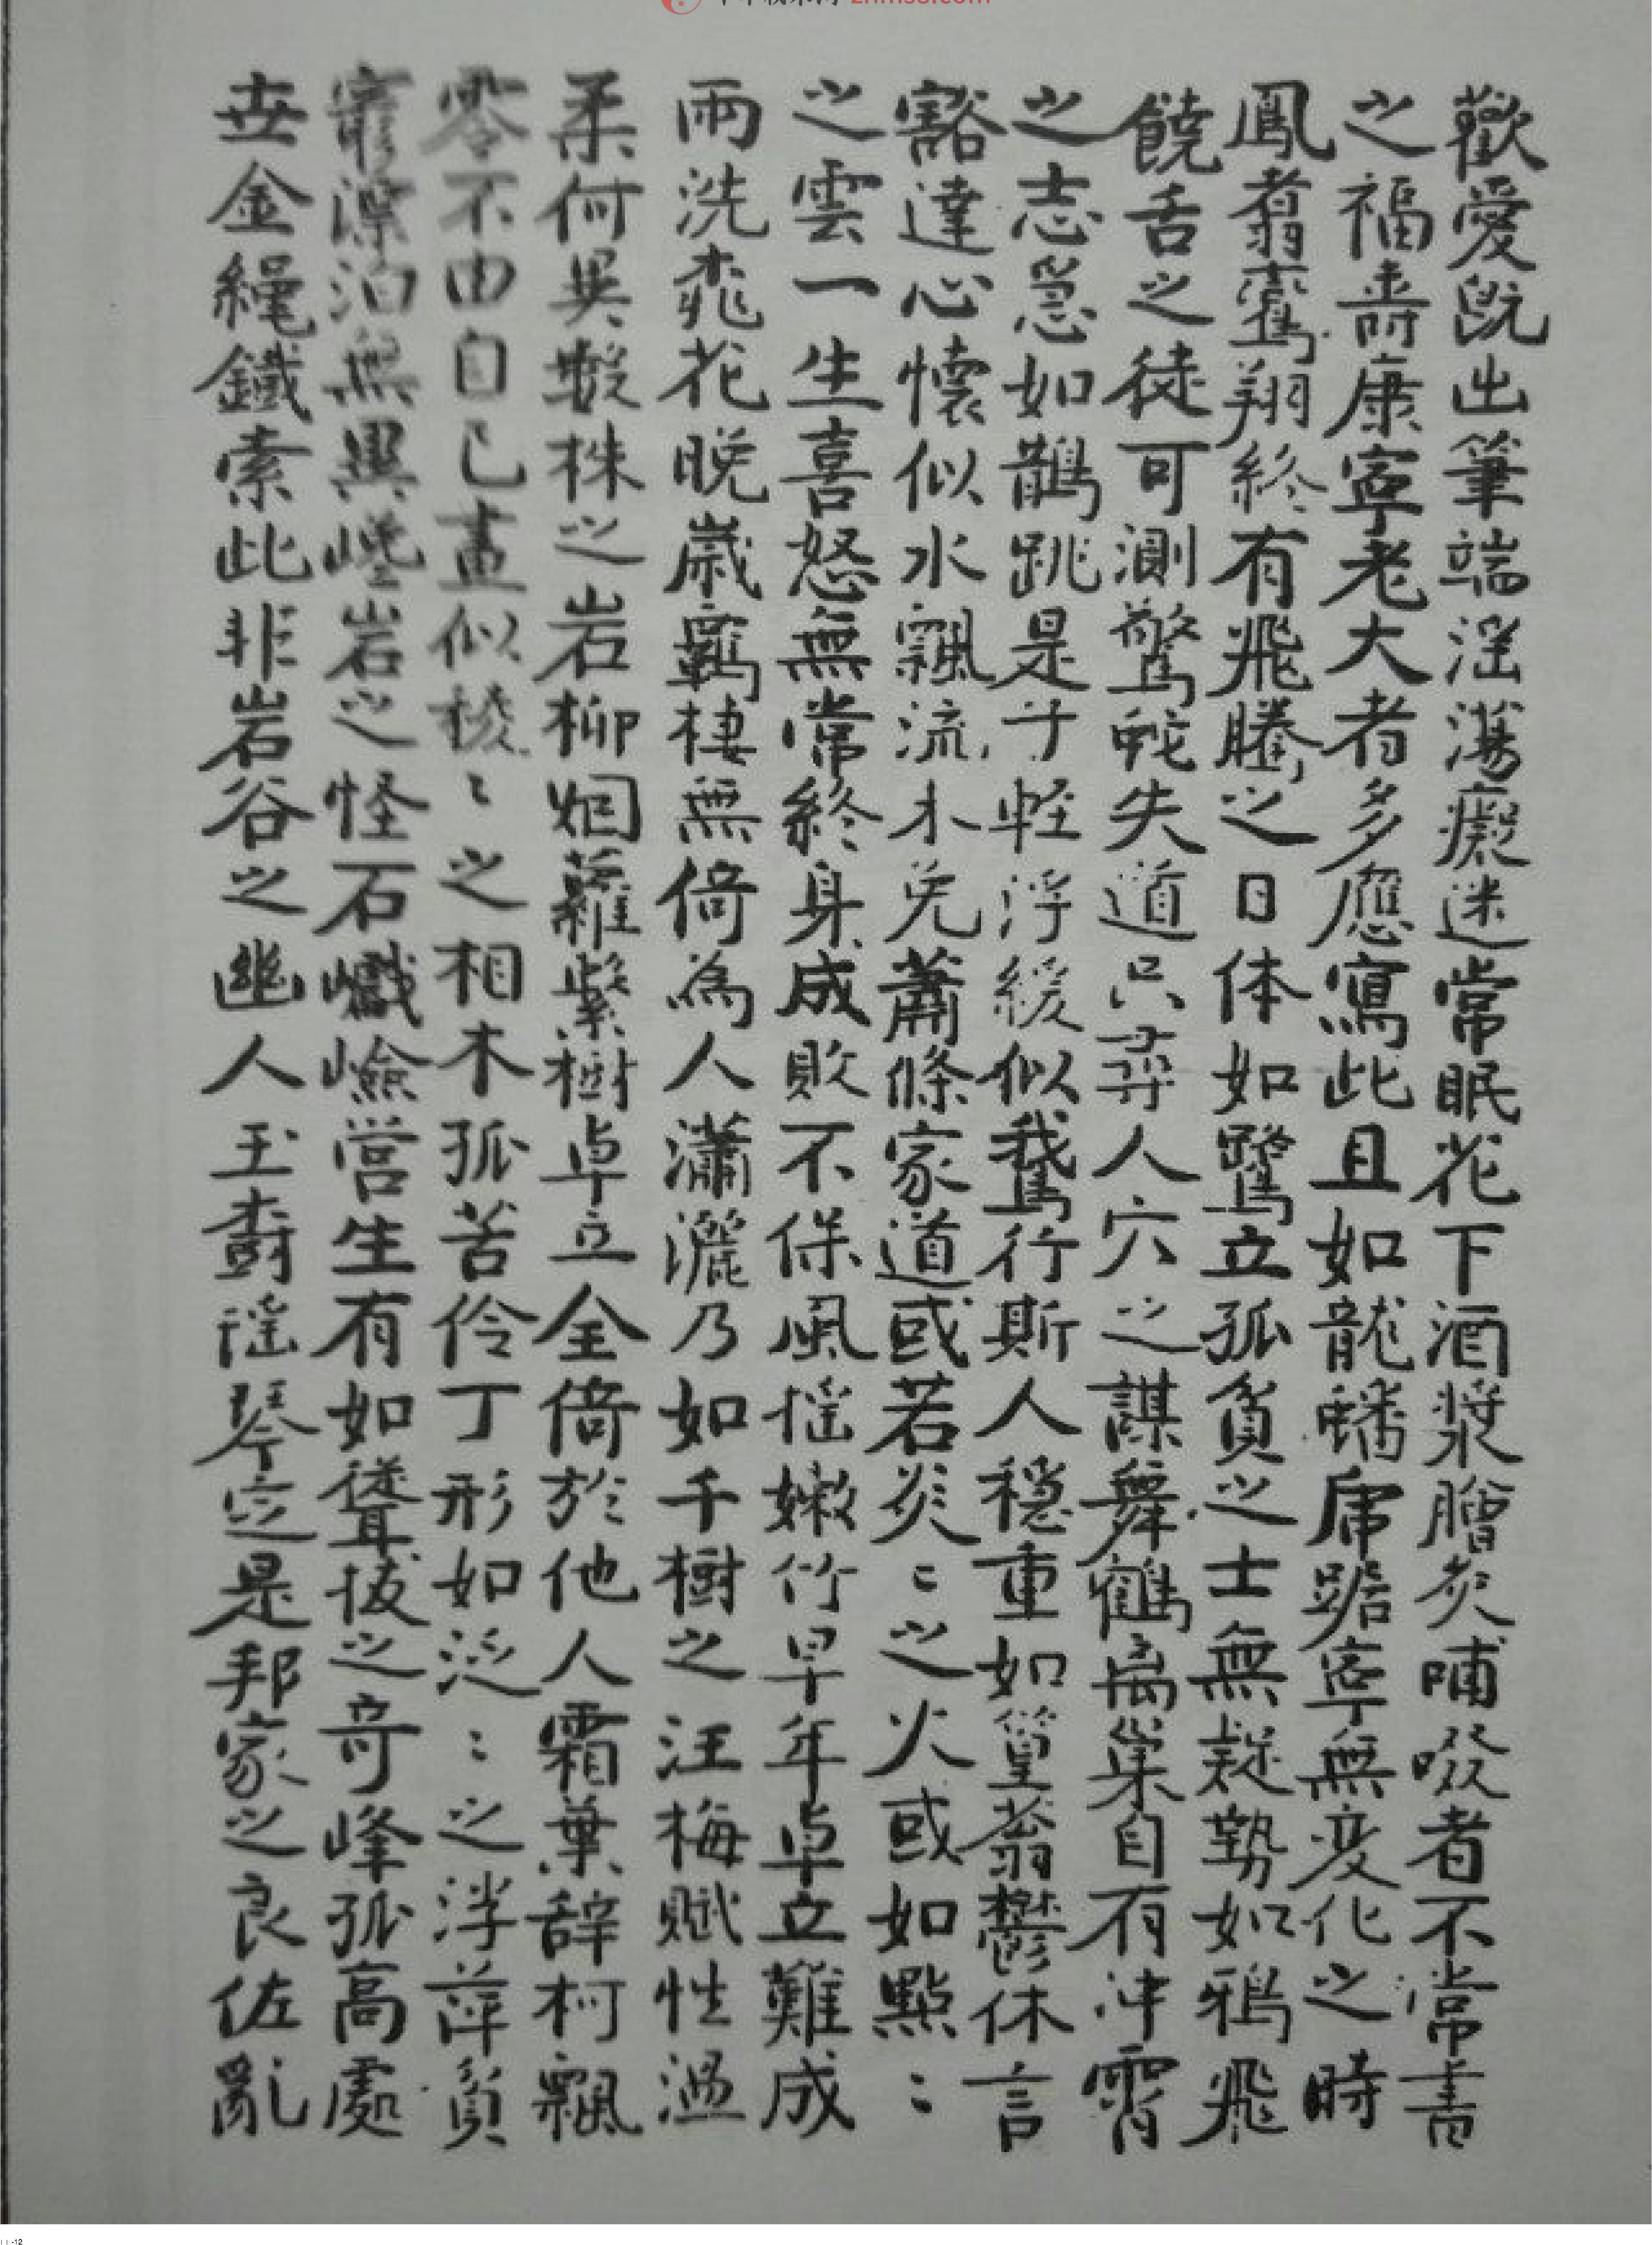 歡愛既出筆端淫蕩癡迷常眠花下酒漿膾炙哺啜者不常書
之福壽康寧老大者多應寫此且如龍蟠虎踞寧無変化之時
鳳翥鸞翔終有飛騰之日体如鷺立孤貧之士無疑勢如鴉飛
饒舌之徒可測驚蛇失道只尋人穴之謀舞鶴离巢自有沖霄
之志急如鵲跳是乎輕浮緩似鵞行斯人穩重如篁蓊鬱休言
豁達心懷似水飄流未免蕭條家道或若炎〻之火或如點〻
之雲一生喜怒無常終身成敗不保風搖嫩竹早年卓立難成
雨洗桃花晚歲羈棲無倚為人瀟灑乃如千樹之汪梅賦性溫
柔何異數株之岩柳烟蘿縈樹卓立全倚於他人霜葉辞柯飄
零不由自己畫似棱〻之相木孤苦伶丁形如泛〻之浮萍貧
窮漂泊無異𡾋岩之怪石巇嶮営生有如聳拔之奇峰孤高處
世金繩鐵索此非岩谷之幽人玉樹瑤琴定是邦家之良佐亂